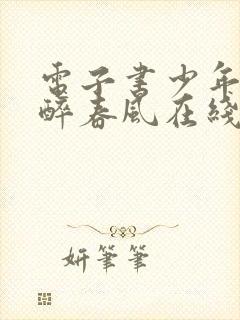 電子書少年
醉春風在綫
妍筆筆